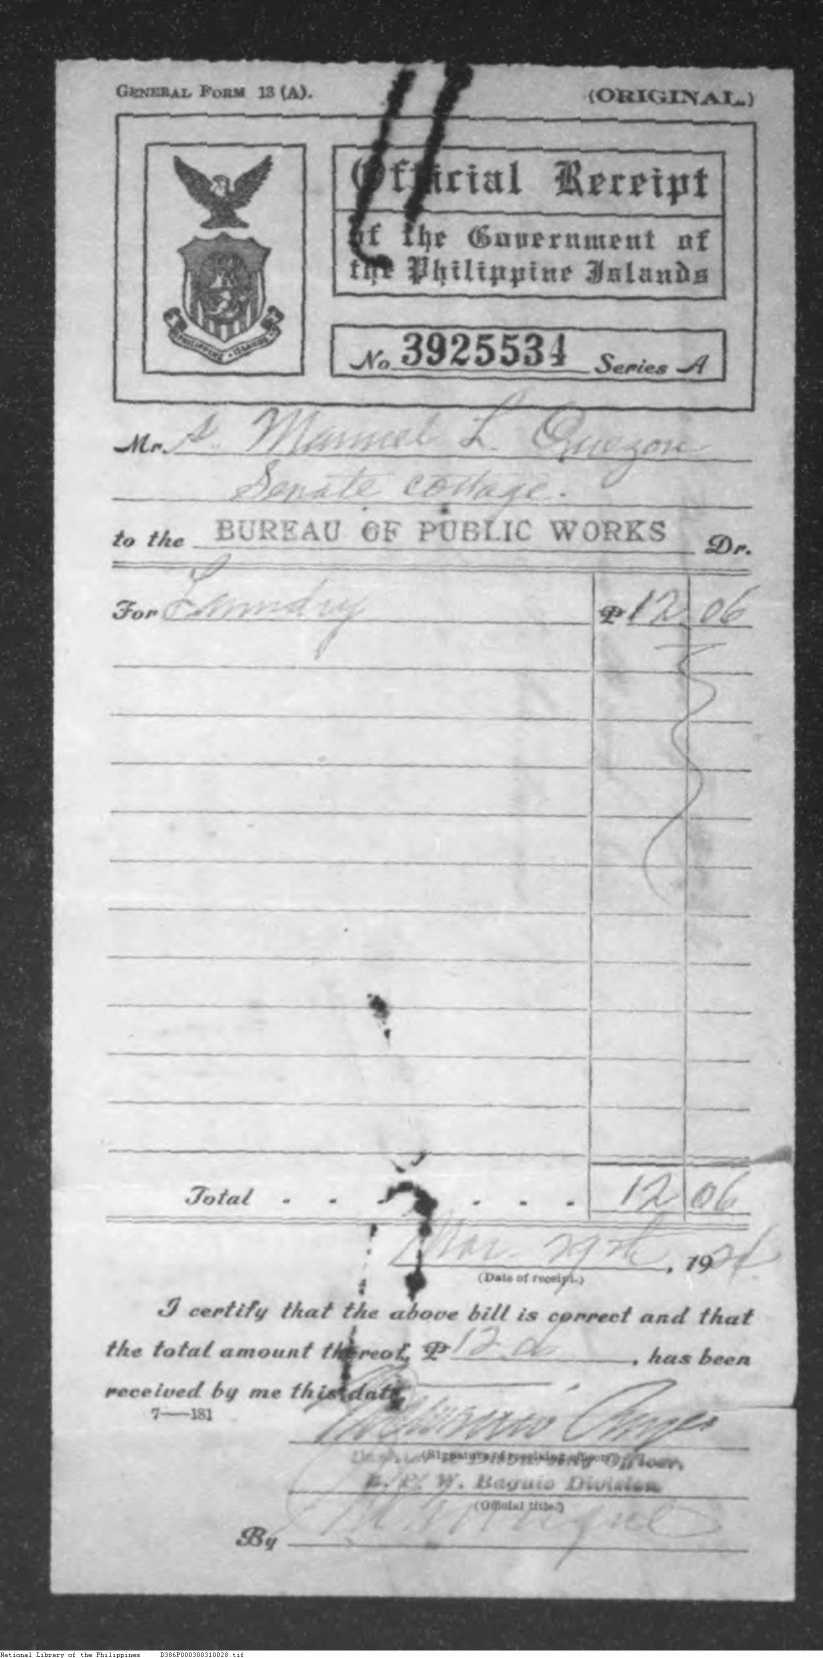 GENERAL FORM 13 (A).
(ORIGINAL.)
Official Receipt
of the Government of
the Philippine Islands
PHILIPPINE ISLANDS
No. 3925534 Series A
Mr. S. Manuel L. Quezon
Senate cottage.
to the BUREAU OF PUBLIC WORKS Dr.
For Laundry ₱ 12 06
Total - - - - - - 12 06
Mar. 29th, 19
(Date of receipt.)
I certify that the above bill is correct and that
the total amount thereof, ₱ 12, has been
received by me this date.
7—181
(Signature of receiving officer.)
Disbursing Officer,
B. P. W. Baguio Division
(Official title.)
By
National Library of the Philippines D386P000300310028.tif